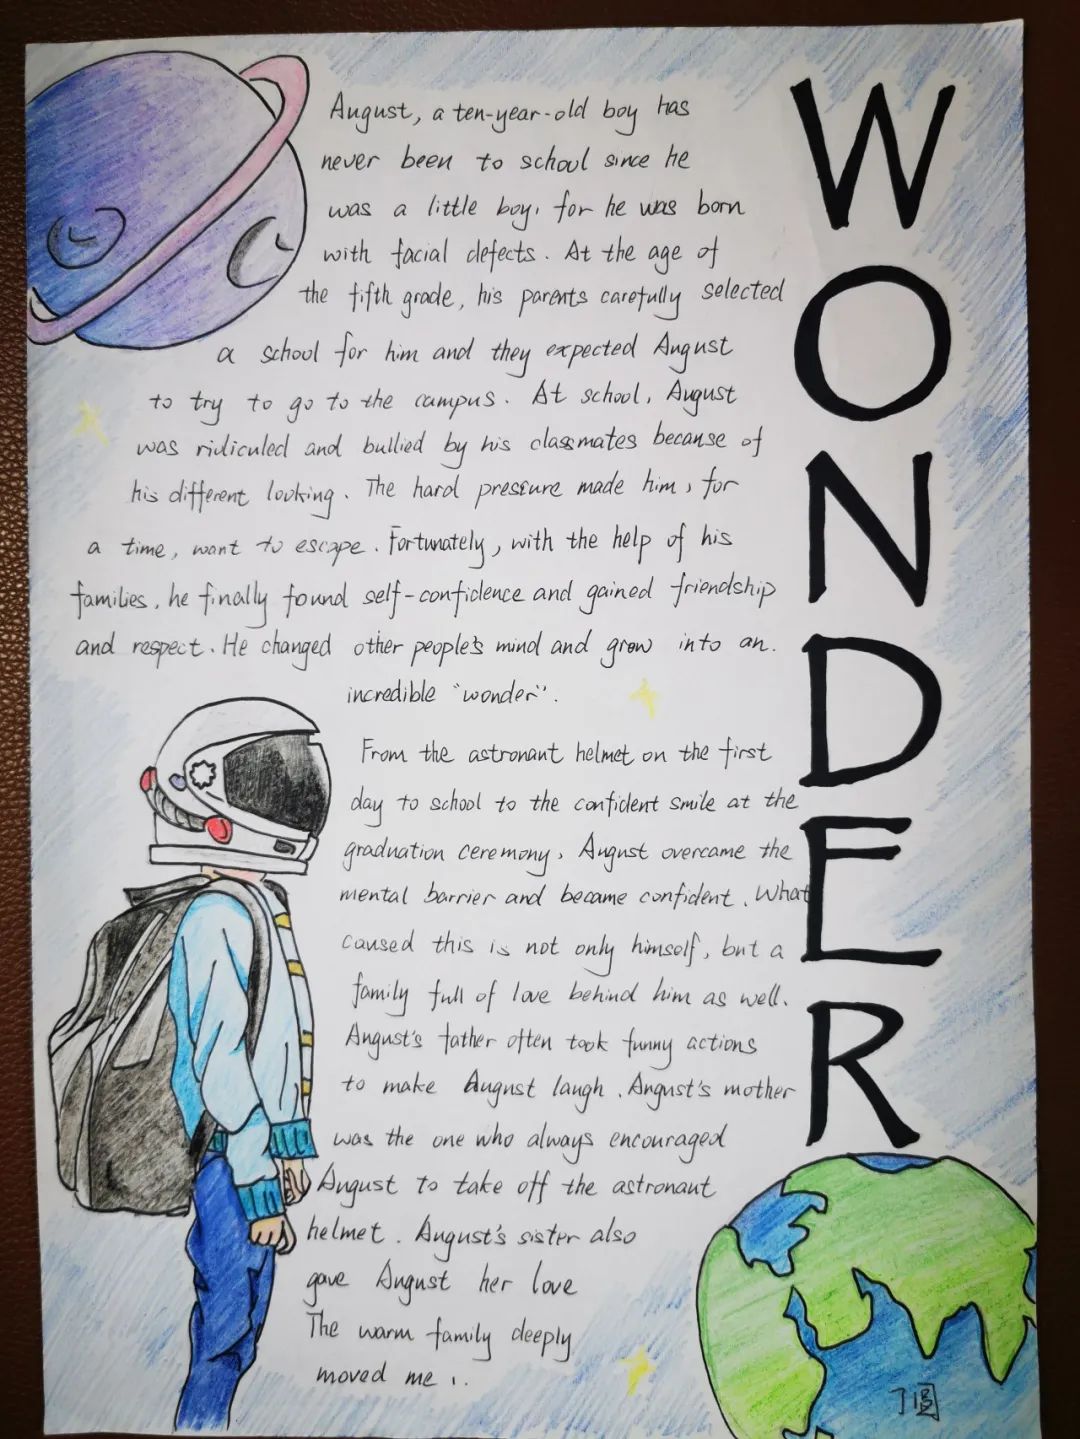 WONDER
August, a ten-year-old boy has
never been to school since he
was a little boy, for he was born
with facial defects. At the age of
the fifth grade, his parents carefully selected
a school for him and they expected August
to try to go to the campus. At school, August
was ridiculed and bullied by his classmates because of
his different looking. The hard pressure made him, for
a time, want to escape. Fortunately, with the help of his
families, he finally found self-confidence and gained friendship
and respect. He changed other people's mind and grow into an.
incredible "wonder".
From the astronant helmet on the first
day to school to the confident smile at the
graduation ceremony, August overcame the
mental barrier and became confident. What
caused this is not only himself, but a
family full of love behind him as well.
August's father often took funny actions
to make August laugh. August's mother
was the one who always encouraged
August to take off the astronaut
helmet. August's sister also
gave August her love
The warm family deeply
moved me.